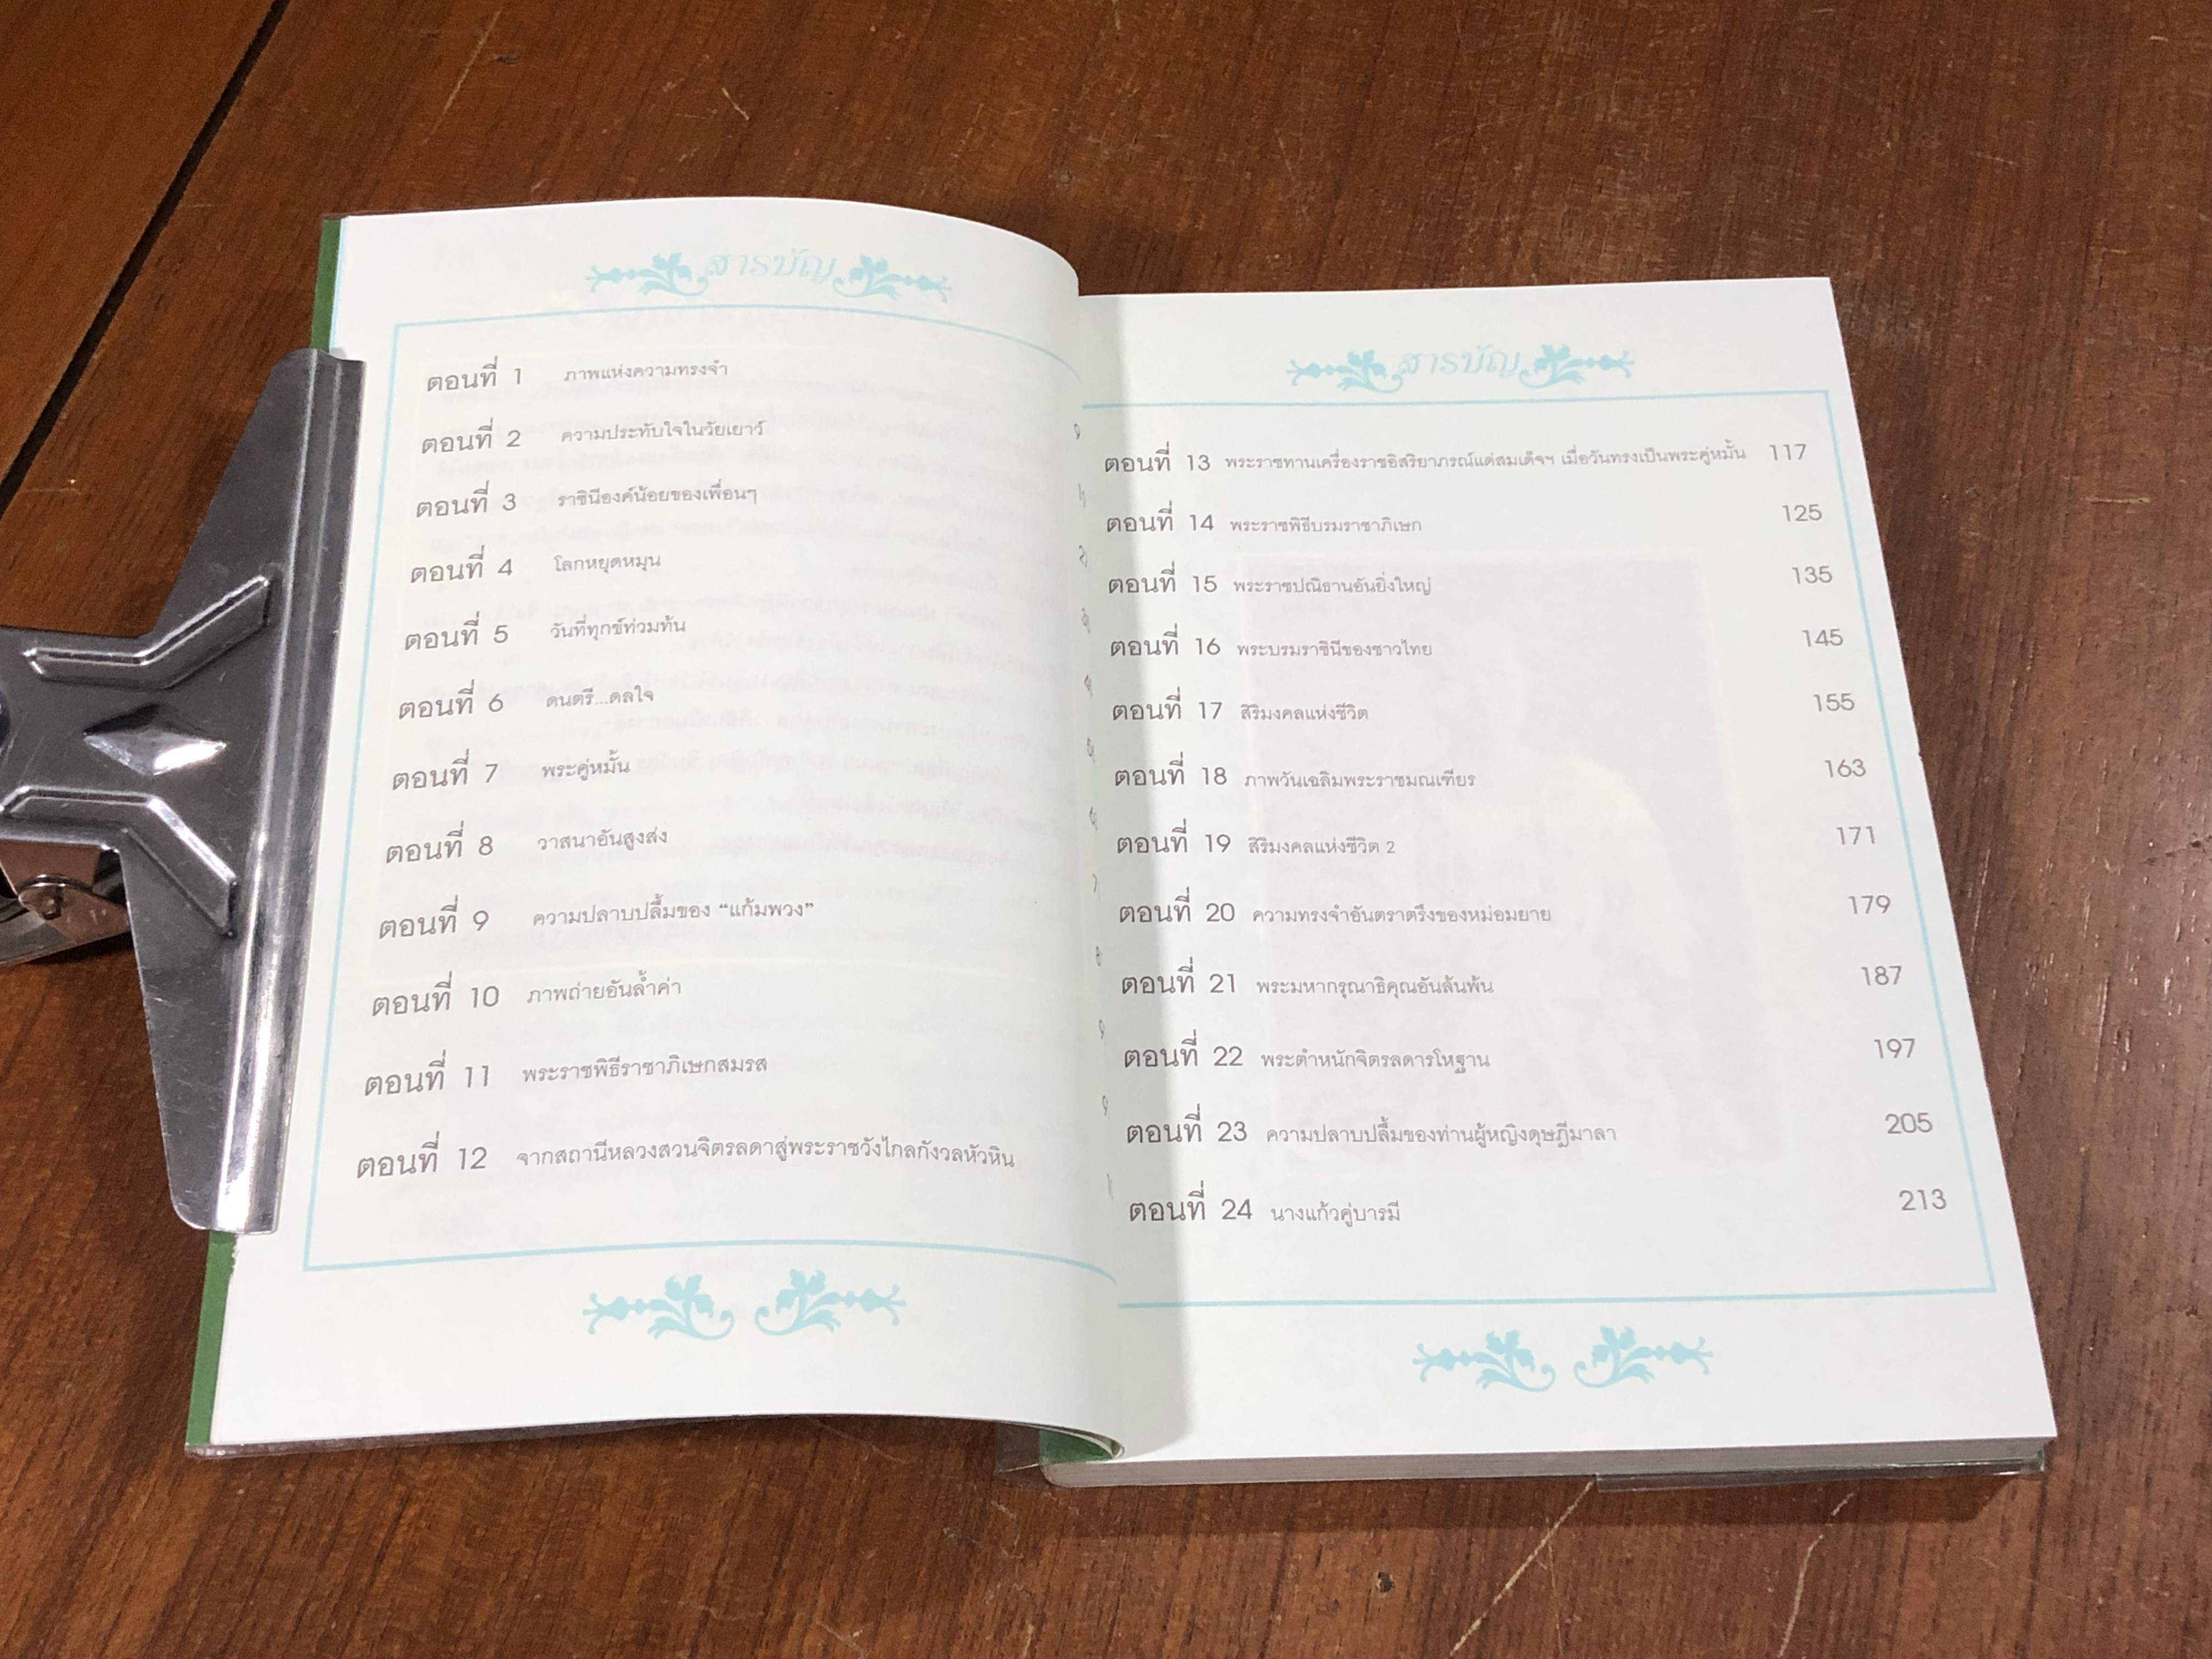 สารบัญ
ตอนที่ 1 ภาพแห่งความทรงจำ
ตอนที่ 2 ความประทับใจในวัยเยาว์
ตอนที่ 3 ราชินีองค์น้อยของเพื่อนๆ
ตอนที่ 4 โลกหยุดหมุน
ตอนที่ 5 วันที่ทุกข์ท่วมท้น
ตอนที่ 6 ดนตรี...ดลใจ
ตอนที่ 7 พระคู่หมั้น
ตอนที่ 8 วาสนาอันสูงส่ง
ตอนที่ 9 ความปลาบปลื้มของ “แก้มพวง”
ตอนที่ 10 ภาพถ่ายอันล้ำค่า
ตอนที่ 11 พระราชพิธีราชาภิเษกสมรส
ตอนที่ 12 จากสถานีหลวงสวนจิตรลดาสู่พระราชวังไกลกังวลหัวหิน
สารบัญ
ตอนที่ 13 พระราชทานเครื่องราชอิสริยาภรณ์แด่สมเด็จฯ เมื่อวันทรงเป็นพระคู่หมั้น 117
ตอนที่ 14 พระราชพิธีบรมราชาภิเษก 125
ตอนที่ 15 พระราชปณิธานอันยิ่งใหญ่ 135
ตอนที่ 16 พระบรมราชินีของชาวไทย 145
ตอนที่ 17 สิริมงคลแห่งชีวิต 155
ตอนที่ 18 ภาพวันเฉลิมพระราชมณเฑียร 163
ตอนที่ 19 สิริมงคลแห่งชีวิต 2 171
ตอนที่ 20 ความทรงจำอันตราตรึงของหม่อมยาย 179
ตอนที่ 21 พระมหากรุณาธิคุณอันล้นพ้น 187
ตอนที่ 22 พระตำหนักจิตรลดารโหฐาน 197
ตอนที่ 23 ความปลาบปลื้มของท่านผู้หญิงดุษฎีมาลา 205
ตอนที่ 24 นางแก้วคู่บารมี 213